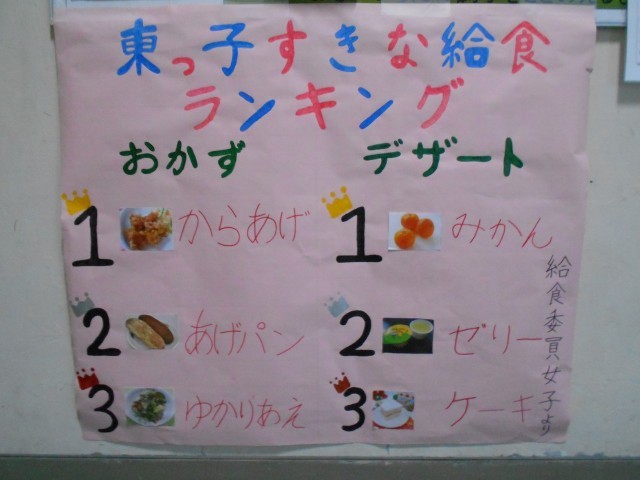 東っ子すきな給食
ランキング
おかず
1 からあげ
2 あげパン
3 ゆかりあえ
デザート
1 みかん
2 ゼリー
3 ケーキ
給食委員女子より